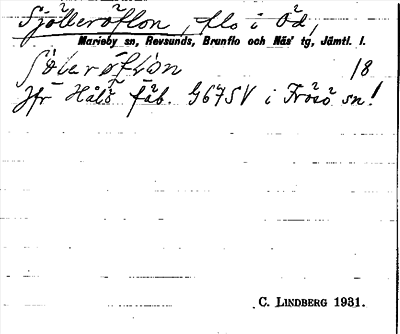 Sjölleröflon, flo i Öd,
Marieby sn, Revsunds, Brunflo och Näs' tg, Jämtl. l.
18
Jfr Hålö fäb. G67SV i Frösö sn!
C. LINDBERG 1931.